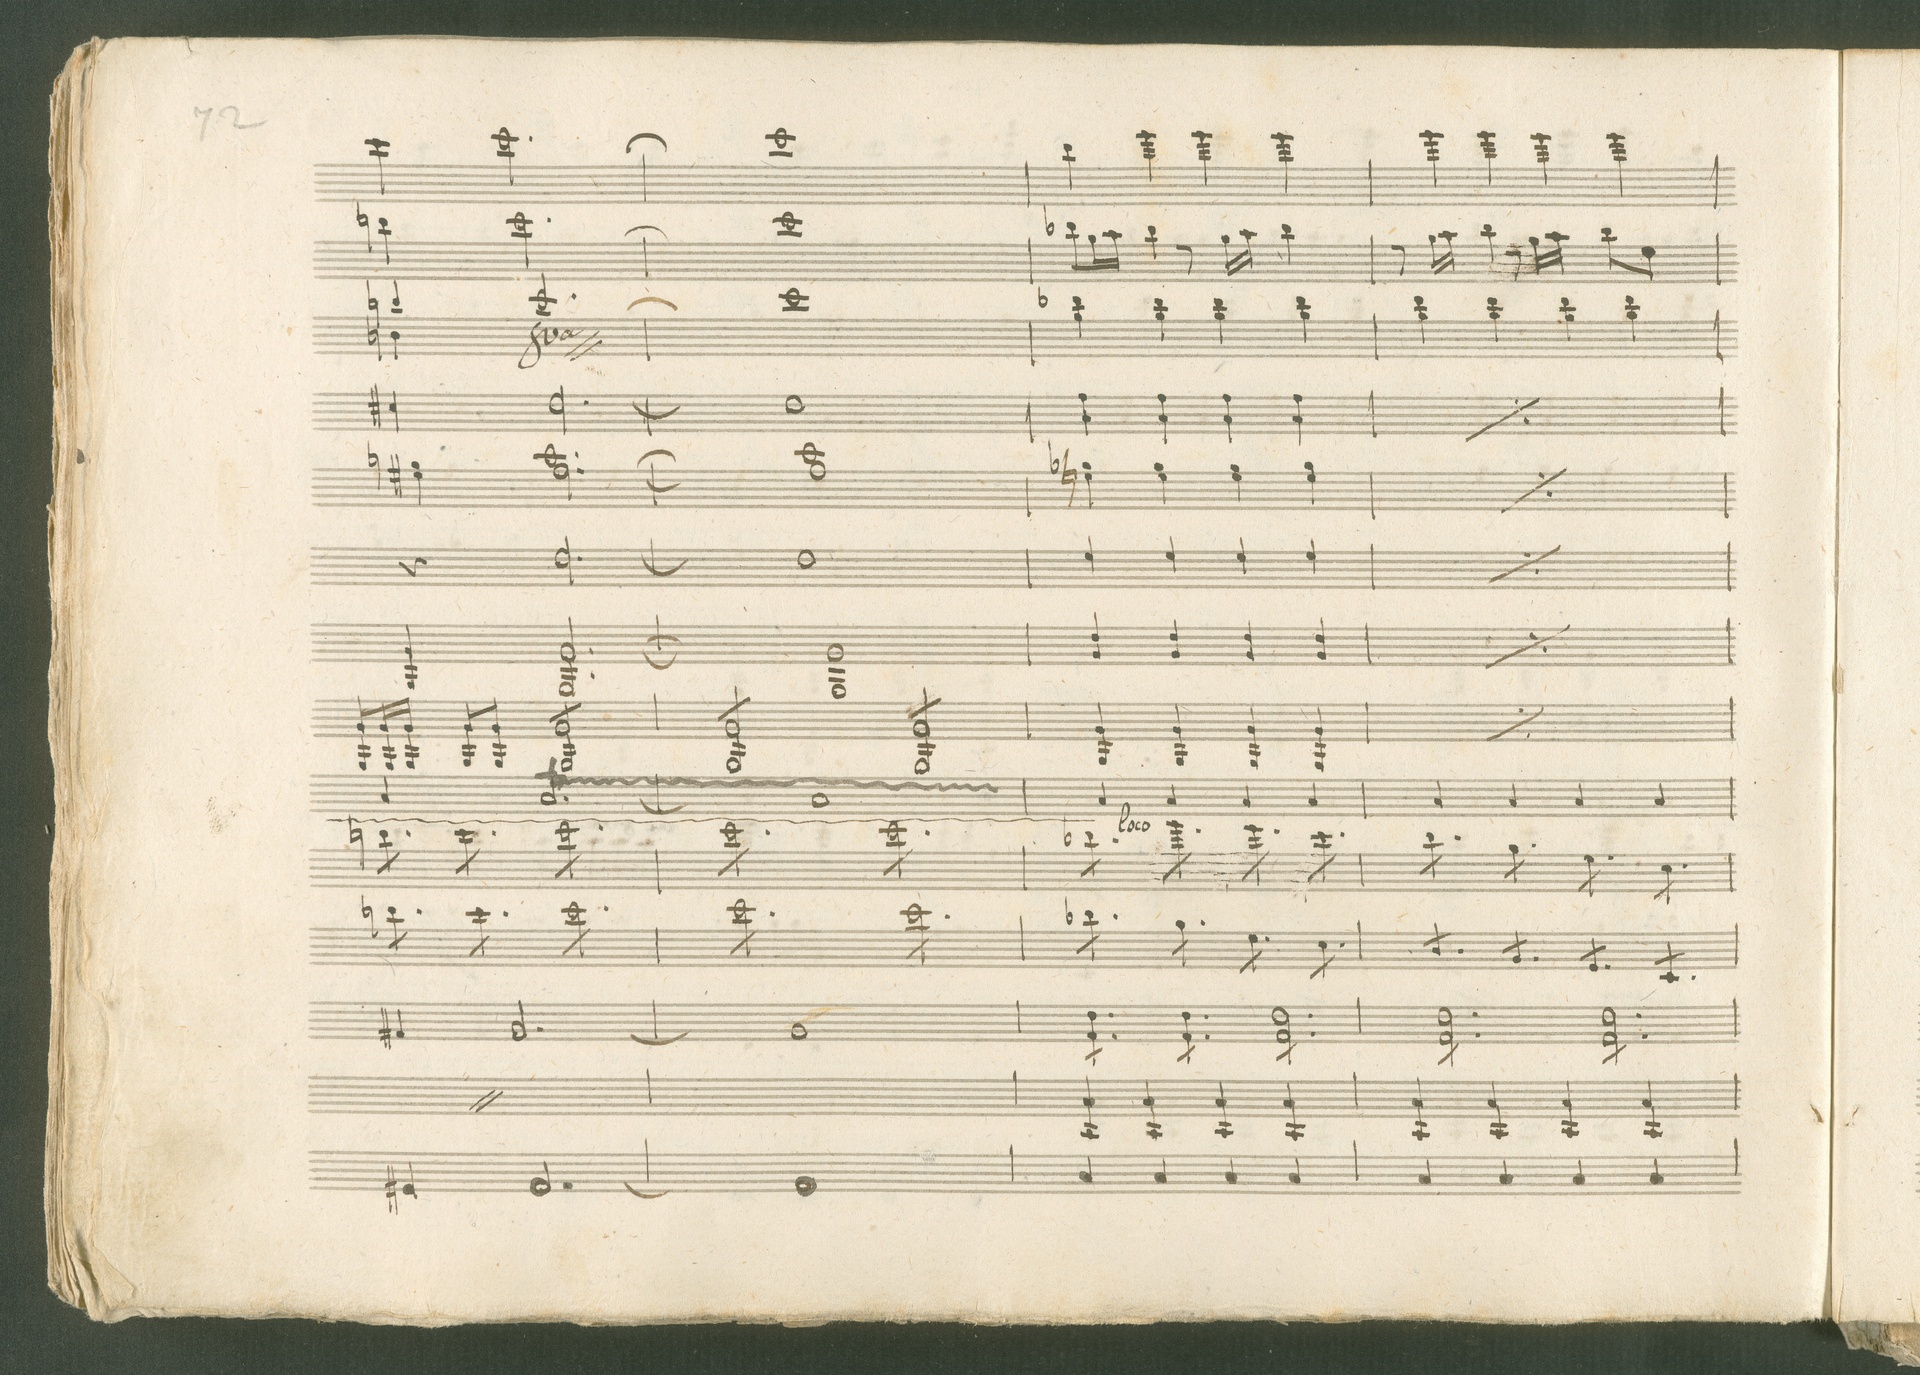 72
8va
loco